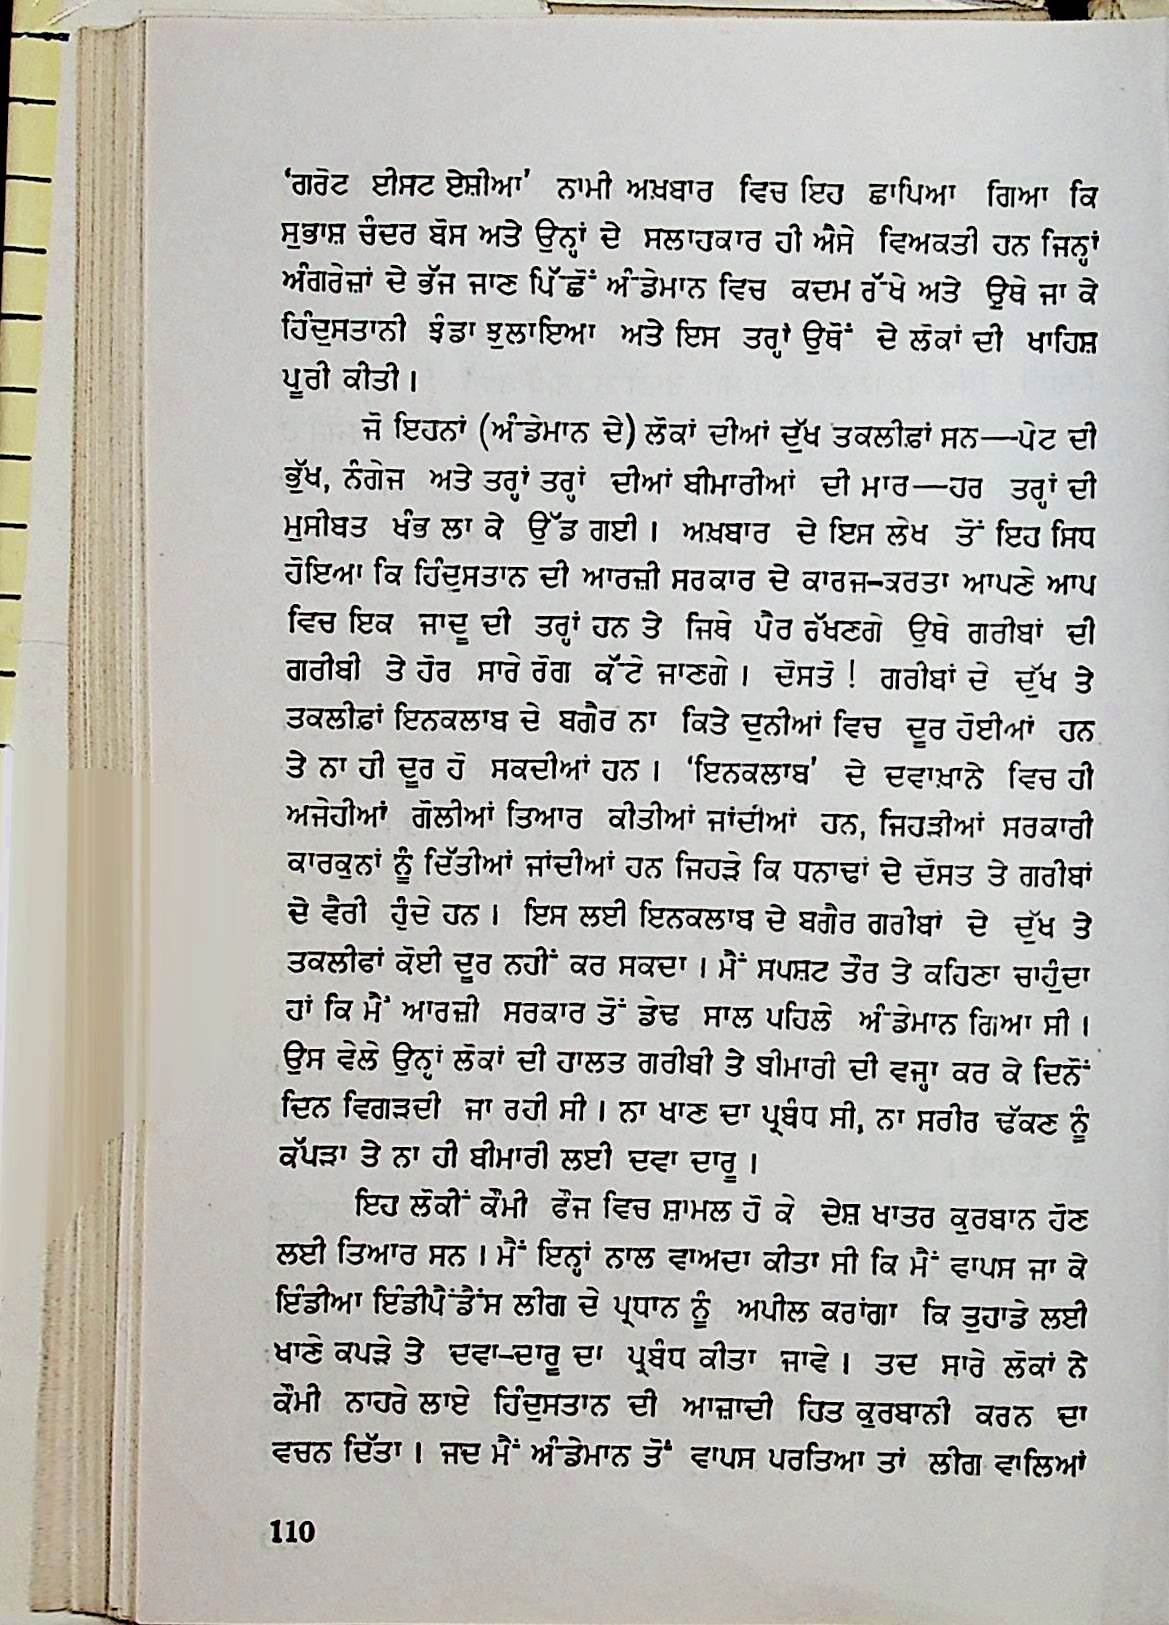 ‘ਗਰੇਟ ਈਸਟ ਏਸ਼ੀਆ’ ਨਾਮੀ ਅਖ਼ਬਾਰ ਵਿਚ ਇਹ ਛਾਪਿਆ ਗਿਆ ਕਿ
ਸੁਭਾਸ਼ ਚੰਦਰ ਬੋਸ ਅਤੇ ਉਨ੍ਹਾਂ ਦੇ ਸਲਾਹਕਾਰ ਹੀ ਐਸੇ ਵਿਅਕਤੀ ਹਨ ਜਿਨ੍ਹਾਂ
ਅੰਗਰੇਜ਼ਾਂ ਦੇ ਭੱਜ ਜਾਣ ਪਿੱਛੋਂ ਅੰਡੇਮਾਨ ਵਿਚ ਕਦਮ ਰੱਖੇ ਅਤੇ ਉਥੇ ਜਾ ਕੇ
ਹਿੰਦੁਸਤਾਨੀ ਝੰਡਾ ਝੁਲਾਇਆ ਅਤੇ ਇਸ ਤਰ੍ਹਾਂ ਉਥੋਂ ਦੇ ਲੋਕਾਂ ਦੀ ਖਾਹਿਸ਼
ਪੂਰੀ ਕੀਤੀ।
ਜੋ ਇਹਨਾਂ (ਅੰਡੇਮਾਨ ਦੇ) ਲੋਕਾਂ ਦੀਆਂ ਦੁੱਖ ਤਕਲੀਫ਼ਾਂ ਸਨ—ਪੇਟ ਦੀ
ਭੁੱਖ, ਨੰਗੇਜ ਅਤੇ ਤਰ੍ਹਾਂ ਤਰ੍ਹਾਂ ਦੀਆਂ ਬੀਮਾਰੀਆਂ ਦੀ ਮਾਰ—ਹਰ ਤਰ੍ਹਾਂ ਦੀ
ਮੁਸੀਬਤ ਖੰਭ ਲਾ ਕੇ ਉੱਡ ਗਈ। ਅਖ਼ਬਾਰ ਦੇ ਇਸ ਲੇਖ ਤੋਂ ਇਹ ਸਿਧ
ਹੋਇਆ ਕਿ ਹਿੰਦੁਸਤਾਨ ਦੀ ਆਰਜ਼ੀ ਸਰਕਾਰ ਦੇ ਕਾਰਜ-ਕਰਤਾ ਆਪਣੇ ਆਪ
ਵਿਚ ਇਕ ਜਾਦੂ ਦੀ ਤਰ੍ਹਾਂ ਹਨ ਤੇ ਜਿਥੇ ਪੈਰ ਰੱਖਣਗੇ ਉਥੇ ਗਰੀਬਾਂ ਦੀ
ਗਰੀਬੀ ਤੇ ਹੋਰ ਸਾਰੇ ਰੋਗ ਕੱਟੇ ਜਾਣਗੇ। ਦੋਸਤੋ! ਗਰੀਬਾਂ ਦੇ ਦੁੱਖ ਤੇ
ਤਕਲੀਫ਼ਾਂ ਇਨਕਲਾਬ ਦੇ ਬਗੈਰ ਨਾ ਕਿਤੇ ਦੁਨੀਆਂ ਵਿਚ ਦੂਰ ਹੋਈਆਂ ਹਨ
ਤੇ ਨਾ ਹੀ ਦੂਰ ਹੋ ਸਕਦੀਆਂ ਹਨ। ‘ਇਨਕਲਾਬ’ ਦੇ ਦਵਾਖ਼ਾਨੇ ਵਿਚ ਹੀ
ਅਜੇਹੀਆਂ ਗੋਲੀਆਂ ਤਿਆਰ ਕੀਤੀਆਂ ਜਾਂਦੀਆਂ ਹਨ, ਜਿਹੜੀਆਂ ਸਰਕਾਰੀ
ਕਾਰਕੁਨਾਂ ਨੂੰ ਦਿੱਤੀਆਂ ਜਾਂਦੀਆਂ ਹਨ ਜਿਹੜੇ ਕਿ ਧਨਾਢਾਂ ਦੇ ਦੋਸਤ ਤੇ ਗਰੀਬਾਂ
ਦੇ ਵੈਰੀ ਹੁੰਦੇ ਹਨ। ਇਸ ਲਈ ਇਨਕਲਾਬ ਦੇ ਬਗੈਰ ਗਰੀਬਾਂ ਦੇ ਦੁੱਖ ਤੇ
ਤਕਲੀਫਾਂ ਕੋਈ ਦੂਰ ਨਹੀਂ ਕਰ ਸਕਦਾ। ਮੈਂ ਸਪਸ਼ਟ ਤੌਰ ਤੇ ਕਹਿਣਾ ਚਾਹੁੰਦਾ
ਹਾਂ ਕਿ ਮੈਂ ਆਰਜ਼ੀ ਸਰਕਾਰ ਤੋਂ ਡੇਢ ਸਾਲ ਪਹਿਲੇ ਅੰਡੇਮਾਨ ਗਿਆ ਸੀ।
ਉਸ ਵੇਲੇ ਉਨ੍ਹਾਂ ਲੋਕਾਂ ਦੀ ਹਾਲਤ ਗਰੀਬੀ ਤੇ ਬੀਮਾਰੀ ਦੀ ਵਜ੍ਹਾ ਕਰ ਕੇ ਦਿਨੋਂ
ਦਿਨ ਵਿਗੜਦੀ ਜਾ ਰਹੀ ਸੀ। ਨਾ ਖਾਣ ਦਾ ਪ੍ਰਬੰਧ ਸੀ, ਨਾ ਸਰੀਰ ਢੱਕਣ ਨੂੰ
ਕੱਪੜਾ ਤੇ ਨਾ ਹੀ ਬੀਮਾਰੀ ਲਈ ਦਵਾ ਦਾਰੂ।
ਇਹ ਲੋਕੀਂ ਕੌਮੀ ਫੌਜ ਵਿਚ ਸ਼ਾਮਲ ਹੋ ਕੇ ਦੇਸ਼ ਖਾਤਰ ਕੁਰਬਾਨ ਹੋਣ
ਲਈ ਤਿਆਰ ਸਨ। ਮੈਂ ਇਨ੍ਹਾਂ ਨਾਲ ਵਾਅਦਾ ਕੀਤਾ ਸੀ ਕਿ ਮੈਂ ਵਾਪਸ ਜਾ ਕੇ
ਇੰਡੀਆ ਇੰਡੀਪੈਂਡੈਂਸ ਲੀਗ ਦੇ ਪ੍ਰਧਾਨ ਨੂੰ ਅਪੀਲ ਕਰਾਂਗਾ ਕਿ ਤੁਹਾਡੇ ਲਈ
ਖਾਣੇ ਕਪੜੇ ਤੇ ਦਵਾ-ਦਾਰੂ ਦਾ ਪ੍ਰਬੰਧ ਕੀਤਾ ਜਾਵੇ। ਤਦ ਸਾਰੇ ਲੋਕਾਂ ਨੇ
ਕੌਮੀ ਨਾਹਰੇ ਲਾਏ ਹਿੰਦੁਸਤਾਨ ਦੀ ਆਜ਼ਾਦੀ ਹਿਤ ਕੁਰਬਾਨੀ ਕਰਨ ਦਾ
ਵਚਨ ਦਿੱਤਾ। ਜਦ ਮੈਂ ਅੰਡੇਮਾਨ ਤੋਂ ਵਾਪਸ ਪਰਤਿਆ ਤਾਂ ਲੀਗ ਵਾਲਿਆਂ
110